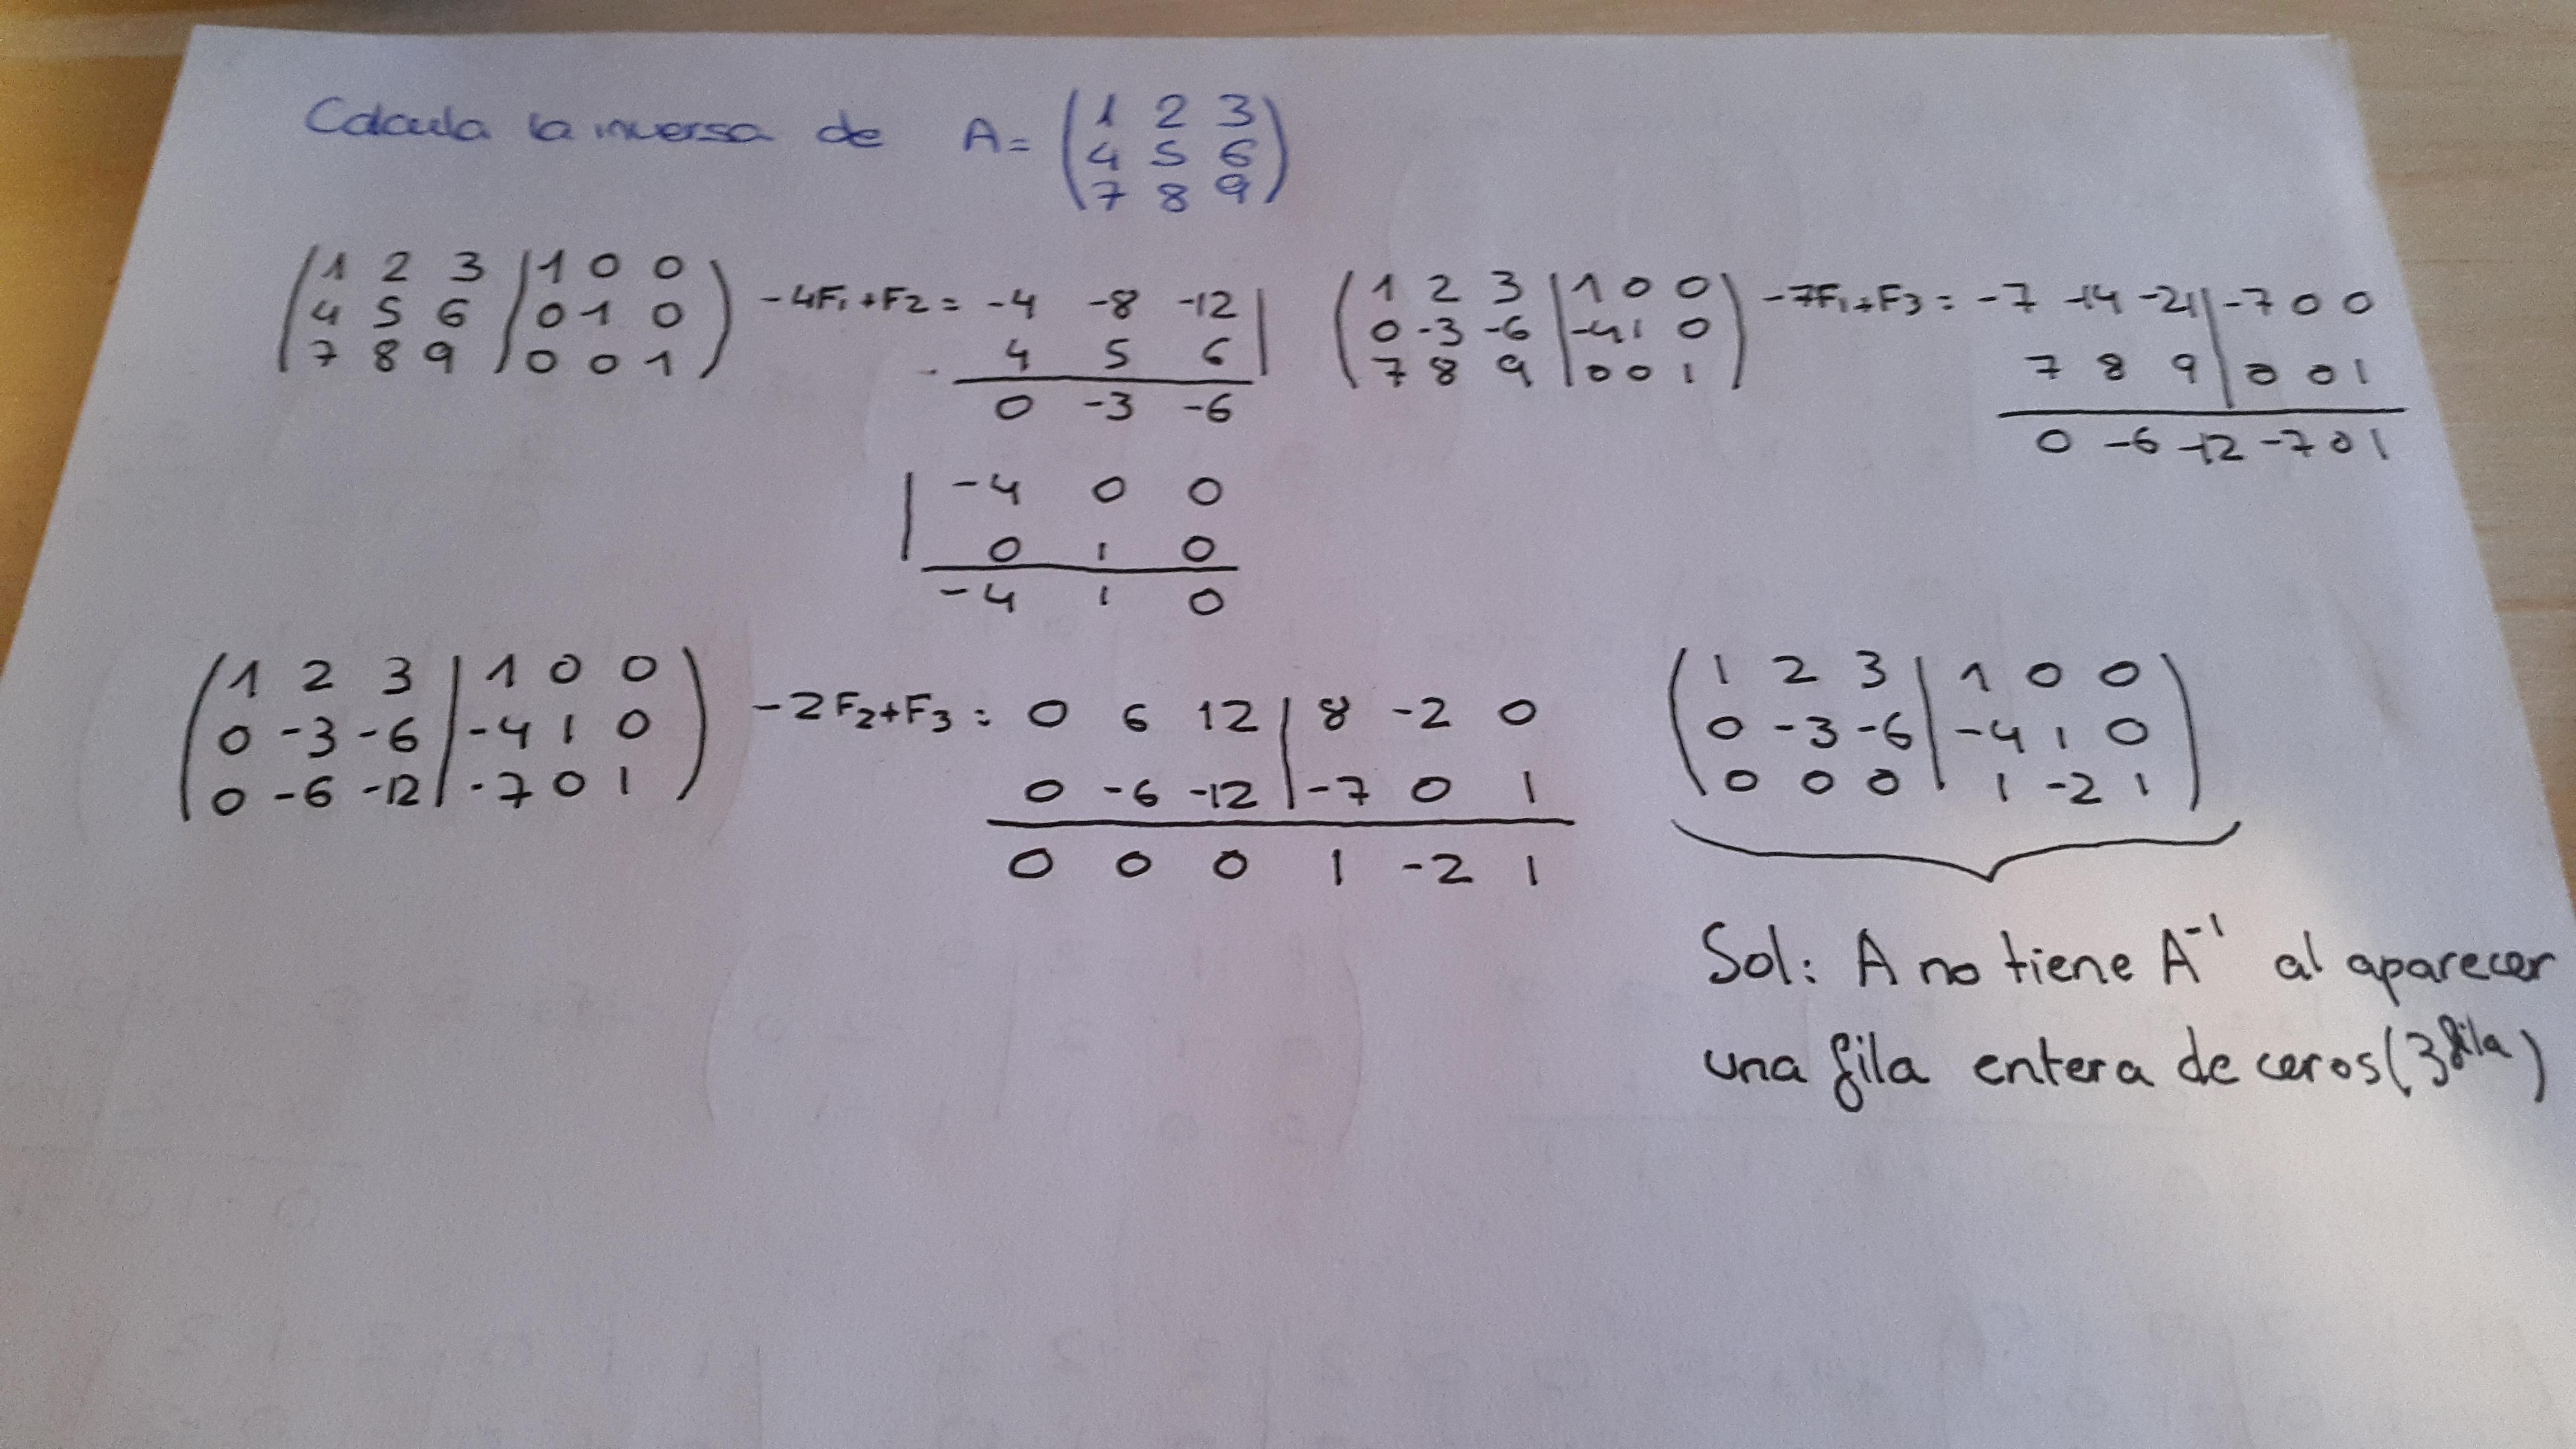 Calcula la inversa de A= (1 2 3
4 5 6
7 8 9)
(1 2 3 | 1 0 0
4 5 6 | 0 1 0
7 8 9 | 0 0 1)
-4F1+F2 = -4 -8 -12 |
4 5 6 |
0 -3 -6
| -4 0 0
| 0 1 0
-4 1 0
(1 2 3 | 1 0 0
0 -3 -6 | -4 1 0
7 8 9 | 0 0 1)
-7F1+F3 = -7 -14 -21 | -7 0 0
7 8 9 | 0 0 1
0 -6 -12 -7 0 1
(1 2 3 | 1 0 0
0 -3 -6 | -4 1 0
0 -6 -12 | -7 0 1)
-2F2+F3 = 0 6 12 | 8 -2 0
0 -6 -12 | -7 0 1
0 0 0 1 -2 1
(1 2 3 | 1 0 0
0 -3 -6 | -4 1 0
0 0 0 | 1 -2 1)
Sol: A no tiene A⁻¹ al aparecer
una fila entera de ceros (3 fila)